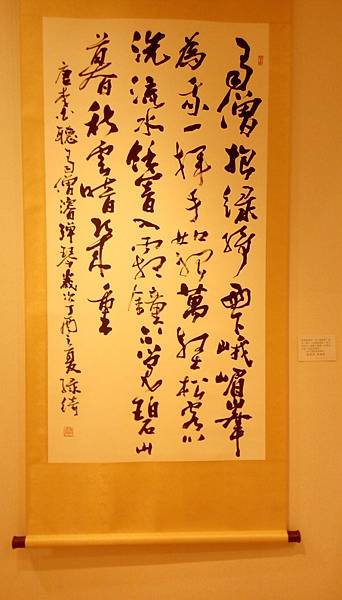 蜀僧抱綠綺西下峨嵋峯
為我一揮手如聽萬壑松客心
洗流水餘響入霜鐘不覺碧山
暮秋雲暗幾重
唐李白聽蜀僧濬彈琴歲次丁酉之夏綠綺